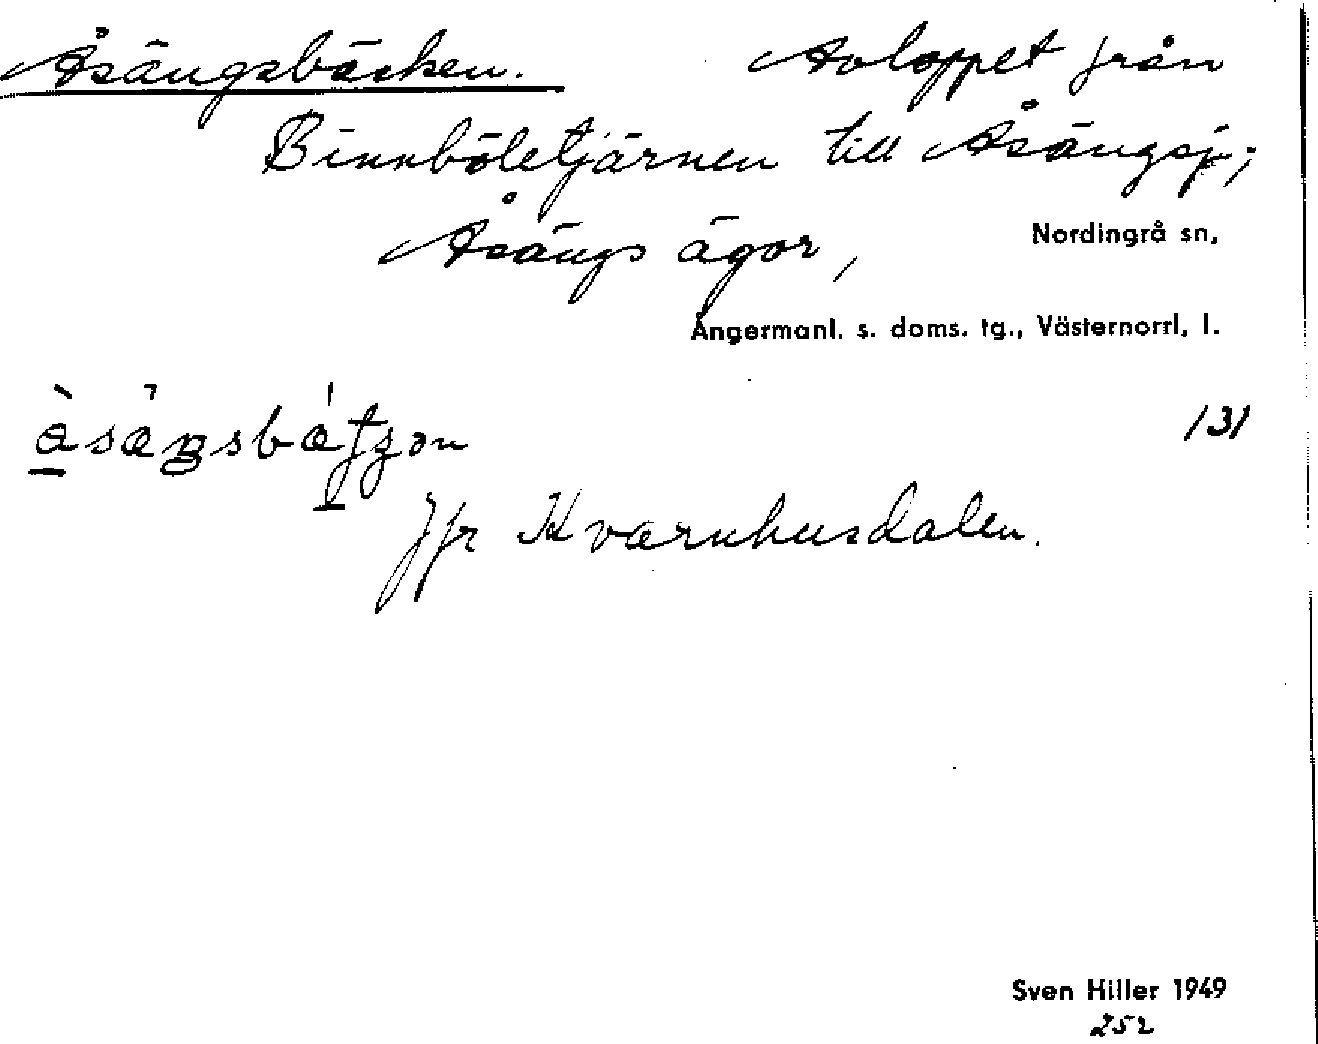 Åsängsbäcken. Avloppet från
Binnböletjärnen till Åsängsj.;
Åsängs ägor,
Nordingrå sn,
Ångermanl. s. doms. tg., Västernorrl. l.
131
Jfr Kvarnhusdalen.
Sven Hiller 1949
252